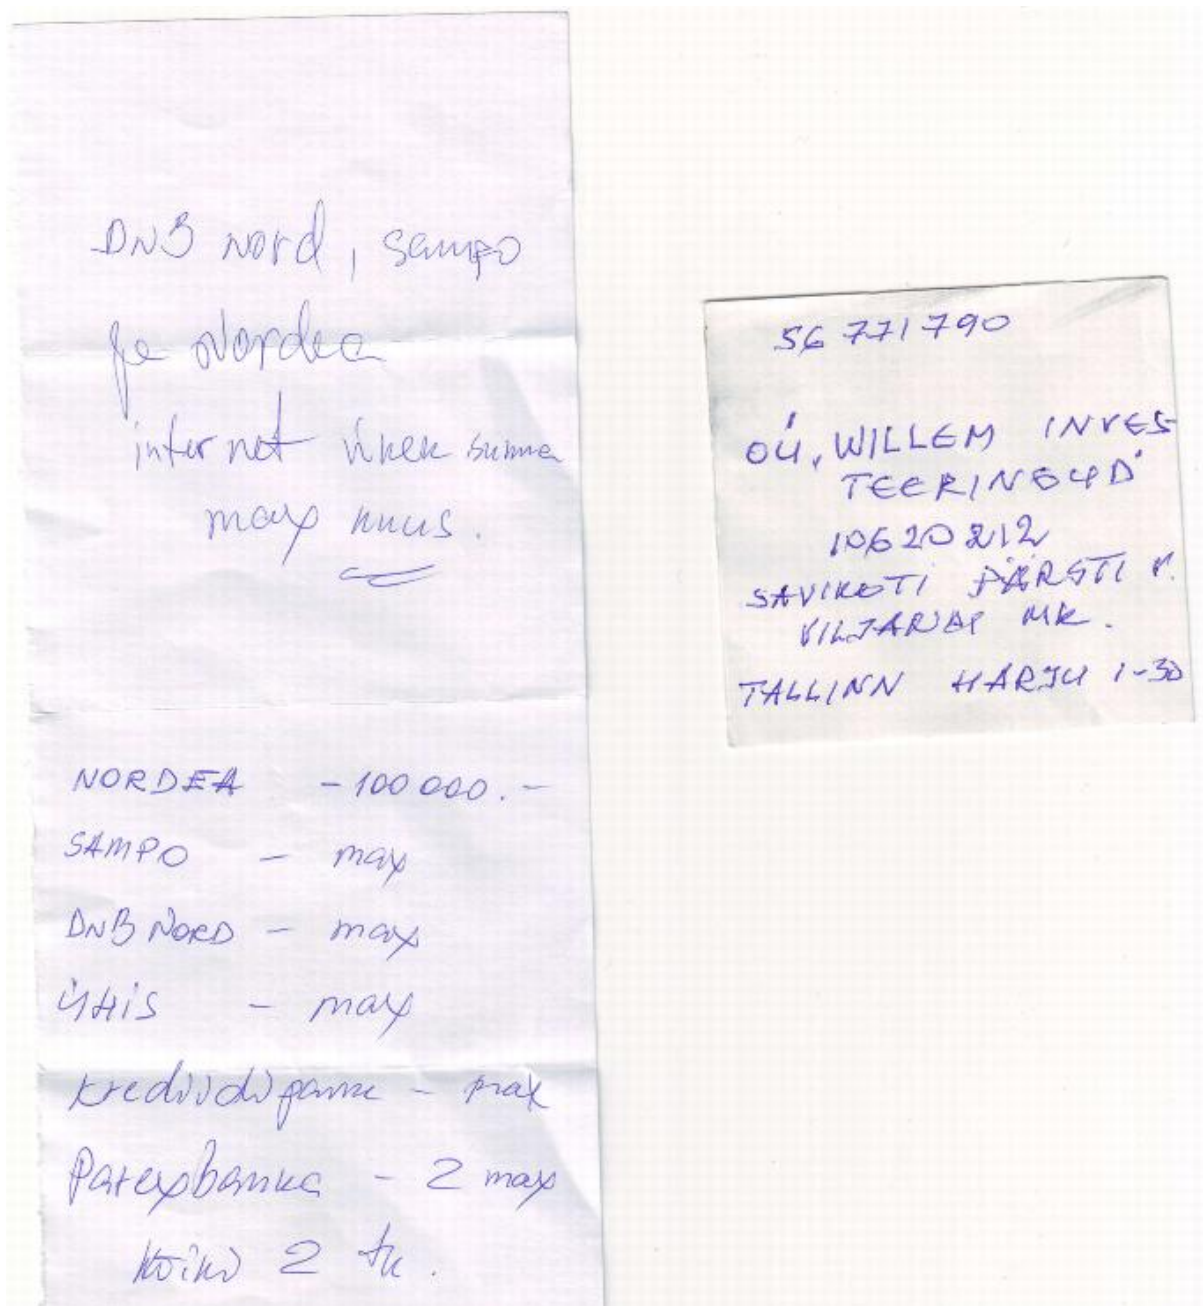 DNB Nord, Sampo
ja Nordea
internet ülek summa
max kuus.
NORDEA - 100 000.-
SAMPO - max
DNB NORD - max
ÜHIS - max
Krediidipank - max
Parexbanka - 2 max
Kõiki 2 tk.
56 771 790
OÜ, WILLEM INVES
TEERINGUD"
10620212
SAVIKOTI PÄRSTI V.
VILJANDI MK.
TALLINN HARJU 1-30